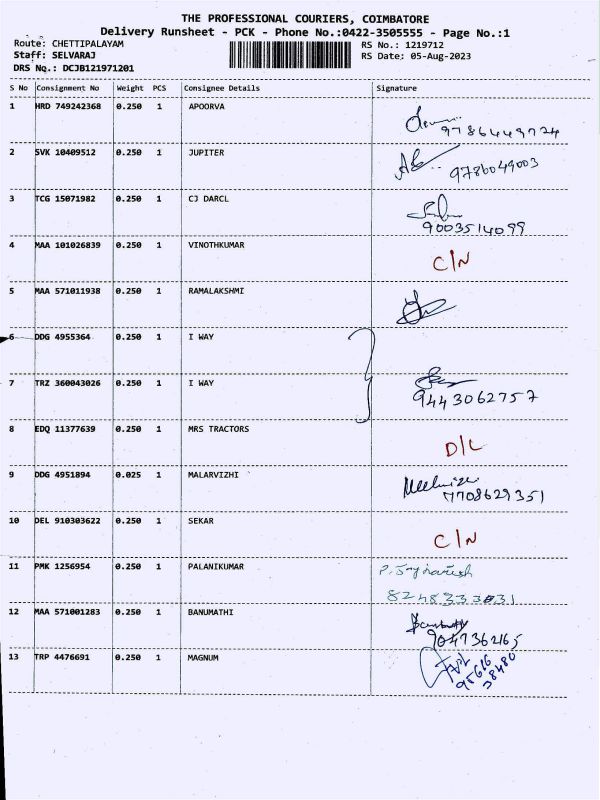 THE PROFESSIONAL COURIERS, COIMBATORE
Delivery Runsheet - PCK - Phone No.:0422-3505555 - Page No.:1
Route: CHETTIPALAYAM RS No.: 1219712
Staff: SELVARAJ RS Date: 05-Aug-2023
DRS No.: DCJB121971201
S No Consignment No Weight PCS Consignee Details Signature
1 HRD 749242368 0.250 1 APOORVA
9786449724
2 SVK 10409512 0.250 1 JUPITER
9786049003
3 TCG 15071982 0.250 1 CJ DARCL
9003514099
4 MAA 101026839 0.250 1 VINOTHKUMAR
C/N
5 MAA 571011938 0.250 1 RAMALAKSHMI
6 DDG 4955364 0.250 1 I WAY
7 TRZ 360043026 0.250 1 I WAY
9443062757
8 EDQ 11377639 0.250 1 MRS TRACTORS
D/L
9 DDG 4951894 0.025 1 MALARVIZHI
7708629351
10 DEL 910303622 0.250 1 SEKAR
C/N
11 PMK 1256954 0.250 1 PALANIKUMAR
12 MAA 571001283 0.250 1 BANUMATHI
9047362165
13 TRP 4476691 0.250 1 MAGNUM
95616
38480